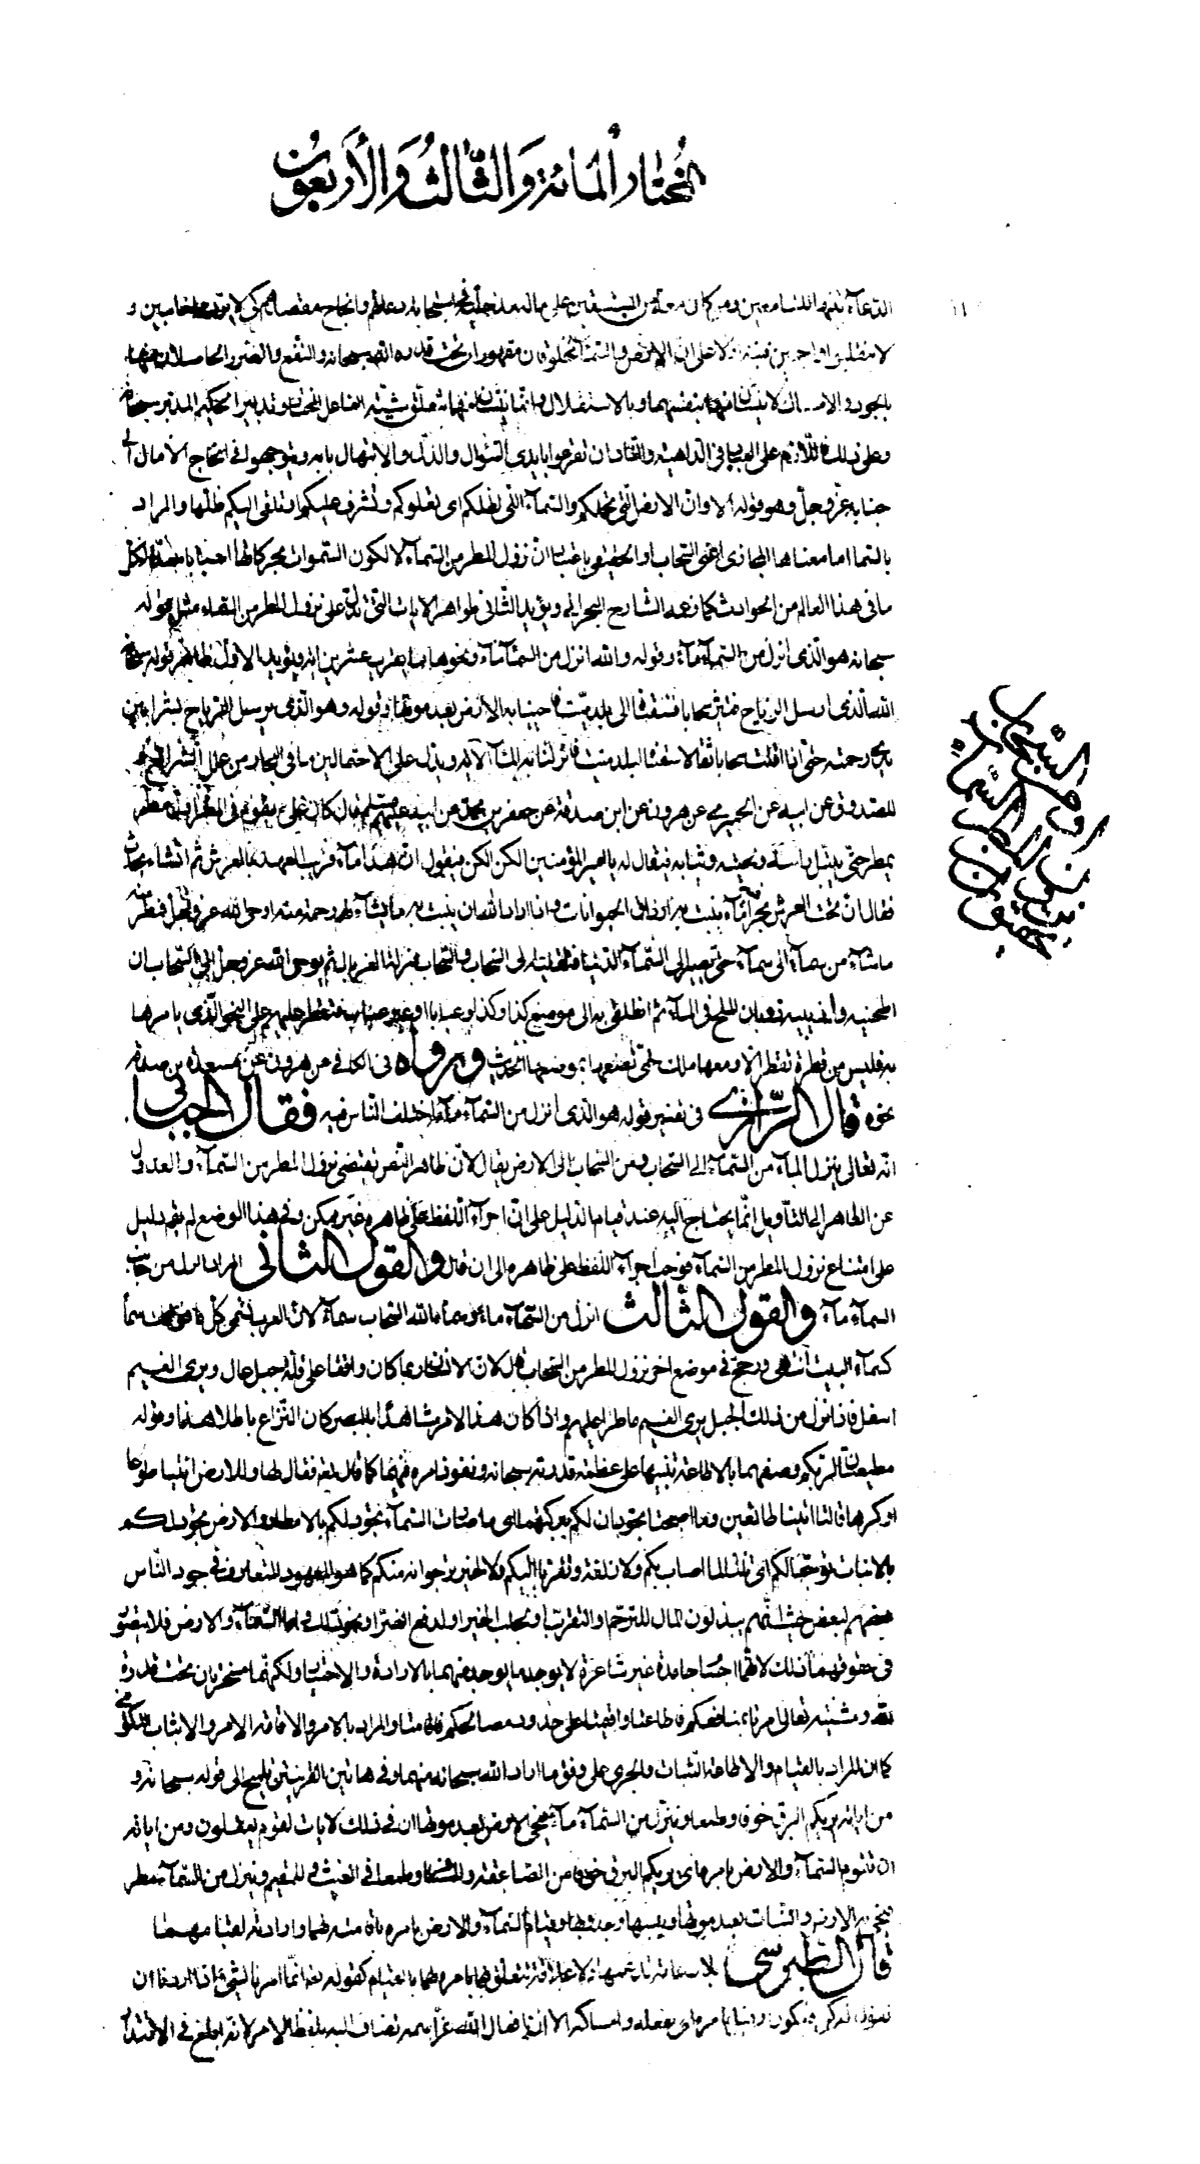 المختار المائة والثالث والأربعون
الدعاء تنبيها للسامعين ومن كان معه من المستسقين على
لا على ان الارض والسماء مخلوقان مقهوران تحت قدرة الله سبحانه والنفع والضرر الحاصلان منهما
بالجود والامساك لا يثبتان منهما بنفسهما وبالاستقلال وانما يثبتان منهما بتعلق مشيته الفاعل المختار وتدبير الحكيم المدبر سبحانه
وعلى ذلك فاللازم على العباد في الداهية والناد ان تقرعوا بايدى السؤال والذل والابتهال بابه ويتوجهوا في انجاح الامال الى
جنابه عز وجل وهو قوله الا وان الارض التى تحملكم والسماء التى تظلكم اى تعلوكم وتشرف عليكم او تلقى اليكم ظلها والمراد
بالسماء اما معناها المجازى اعنى السحاب او الحقيقى باعتبار ان نزول المطر من السماء لا لكون السموات بحركاتها اسبابا معدة لكل
ما في هذا العالم من الحوادث كما زعمه الشارح البحرانى ويؤيد الثانى ظواهر الايات التى تدل على نزول المطر من السماء مثل قوله
سبحانه هو الذى انزل من السماء ماء وقوله والله انزل من السماء ماء ونحوها مما يقرب عشرين اية ويؤيد الاول ظاهر قوله سبحانه
الله الذى ارسل الرياح فتثير سحابا فسقناه الى بلد ميت فاحيينا به الارض بعد موتها وقوله وهو الذى يرسل الرياح بشرا بين
يدى رحمته حتى اذا اقلت سحابا ثقالا سقناه لبلد ميت فانزلنا به الماء الاية ويدل على الاحتمالين ما في البحار من علل الشرايع
للصدوق عن ابيه عن الحميرى عن هرون عن ابن صدقة عن جعفر بن محمد عن ابيه عليهم السلم قال كان على يقوم في المطر اول مطر
يمطر حتى يبتل راسه ولحيته وثيابه فيقال له يا امير المؤمنين الكن الكن فيقول ان هذا ماء قريب العهد بالعرش ثم انشاء يحدث
فقال ان تحت العرش بحرا فيه ماء ينبت به ارزاق الحيوانات واذا اراد الله ان ينبت به ما يشاء لهم رحمة منه اوحى الله عز وجل فمطر منه
ما شاء من سماء الى سماء حتى يصير الى السماء الدنيا فتلقيه الى السحاب والسحاب بمنزلة الغربال ثم يوحى الله عز وجل الى السحاب ان
اطحنيه واذيبيه ذوبان الملح في الماء ثم انطلقى به الى موضع كذا وكذا وعبابا او غير عباب فتقطر عليهم على النحو الذى يامرها
به فليس من قطرة تقطر الا ومعها ملك حتى تضعها بموضعها الحديث ورواه في الكافى عن هرون عن مسعدة بن صدقة
نحوه قال الرازى في تفسير قوله هو الذى انزل من السماء ماء اختلف الناس فيه فقال الجبائى
انه تعالى ينزل الماء من السماء الى السحاب ومن السحاب الى الارض يقال لان ظاهر النص يقتضى نزول المطر من السماء والعدول
عن الظاهر الى التاويل انما يحتاج اليه عند قيام الدليل على ان اجراء اللفظ على ظاهره غير ممكن وفي هذا الموضع لم يقم دليل
على امتناع نزول المطر من السماء فوجب اجراء اللفظ على ظاهره الى ان قال والقول الثانى المراد انزل من جانب
السماء ماء والقول الثالث انزل من السماء ماء وسما الله السحاب سماء لان العرب تسمى كل ما فوقك سماء
كسماء البيت انتهى ورجح في موضع اخر نزول المطر من السحاب قال لان الانسان ربما كان واقفا على قلة جبل عال ويرى الغيم
اسفل فاذا نزل من ذلك الجبل يرى الغيم ماطرا عليهم واذا كان هذا الامر مشاهدا بالبصر كان النزاع باطلا هذا وقوله
مطيعتان لربكم وصفهما بالاطاعة تنبيها على عظمة قدرته سبحانه ونفوذ امره فيهما كما قال تعالى فقال لها وللارض ائتيا طوعا
او كرها قالتا اتينا طائعين وما اصبحتا تجودان لكم ببركتهما اى ما صارت السماء تجود لكم بالامطار والارض تجود لكم
بالانبات توجعا لكم اى تالما لما اصاب بكم ولا زلفة وتقربا اليكم ولا لخير ترجوانه منكم كما هو المعهود المتعارف في جود الناس
بعضهم لبعض حيث انهم يبذلون المال للترحم والتقرب او لجلب الخير او لدفع الضرر او نحو ذلك واما السماء والارض فلا يتصور
في حقهما ذلك لانهما اجسام جامدة غير شاعرة لا يوجد ما يوجد منهما بالارادة والاختيار ولكنهما مسخرتان تحت قدرة
الله ومشيته تعالى امرتا بمنافعكم فاطاعتا واقيمتا على حدود مصالحكم فقامتا والمراد بالامر والاقامة الامر والاثبات التكوينى
كما ان المراد بالقيام والاطاعة الثبات والجرى على وفق ما اراد الله سبحانه منهما وفي هاتين القرينتين تلميح الى قوله سبحانه و
من اياته يريكم البرق خوفا وطمعا وينزل من السماء ماء فيحيى به الارض بعد موتها ان في ذلك لايات لقوم يعقلون ومن اياته
ان تقوم السماء والارض بامره اى يريكم البرق خوفا من الصاعقة وللمسافر وطمعا في الغيث وللمقيم وينزل من السماء مطر
فيحيى به الارض والنبات بعد موتها ويبسها وجدوبها وقيام السماء والارض بامره باقامته لهما وارادته لقيامهما
قال الطبرسى بلا دعامة تدعمها ولا علاقة تتعلق بها بامره لهما بالقيام كقوله تعالى انما امرنا لشئ اذا اردنا ان
نقول له كن فيكون وقيل بامره اى بفعله وامساكه الا ان افعال الله عز اسمه تضاف اليه بلفظ الامر لانه ابلغ في الاقتدار
السحاب